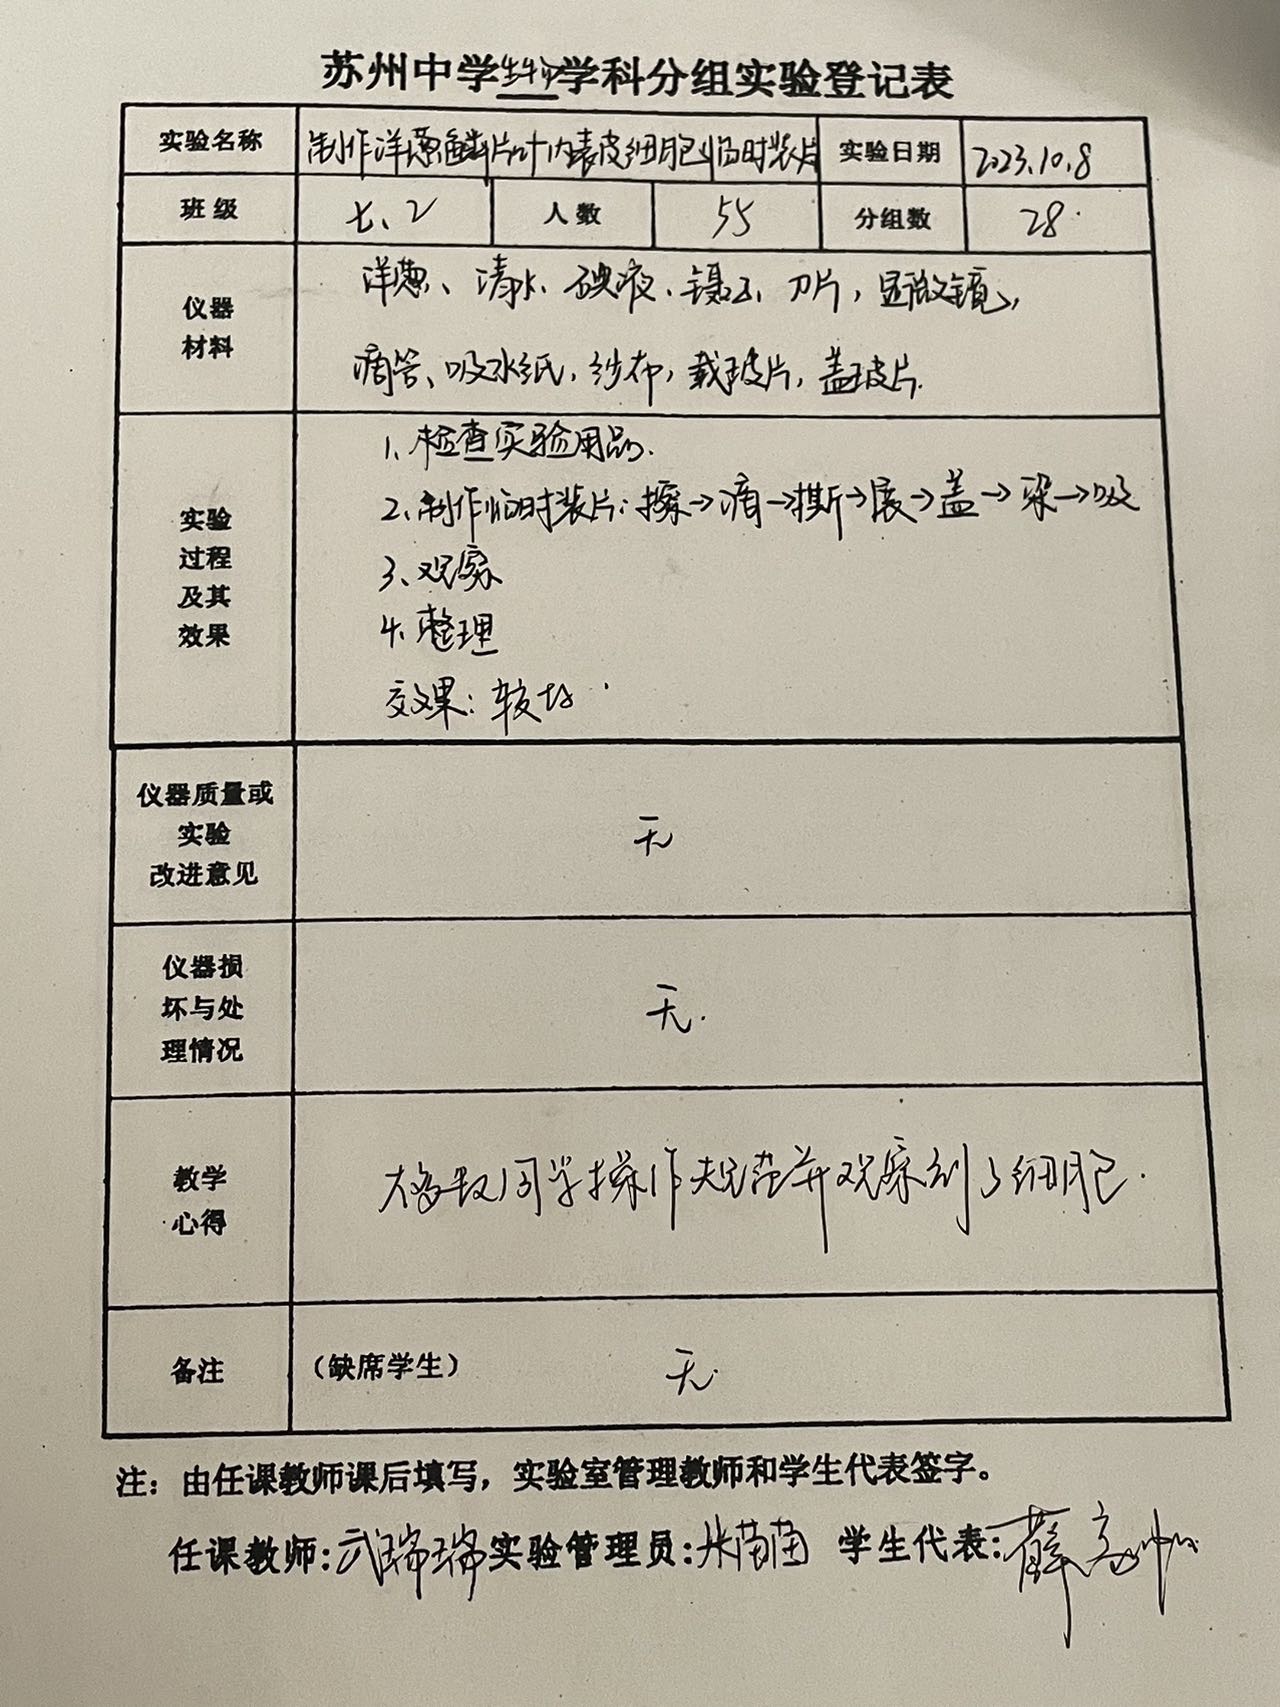 苏州中学生物学科分组实验登记表
实验名称 制作洋葱鳞片叶内表皮细胞临时装片 实验日期 2023.10.8
班级 七、2 人数 55 分组数 28
仪器
材料
洋葱、清水、碘液、镊子、刀片,显微镜,
滴管、吸水纸,纱布,载玻片,盖玻片.
实验
过程
及其
效果
1、检查实验用品.
2、制作临时装片:擦→滴→撕→展→盖→染→吸
3、观察
4、整理
效果:较好
仪器质量或
实验
改进意见
无
仪器损
坏与处
理情况
无.
教学
心得
大多数同学操作规范并观察到了细胞.
备注 (缺席学生) 无
注:由任课教师课后填写,实验室管理教师和学生代表签字。
任课教师:武瑞瑞 实验管理员:苗苗 学生代表:薛